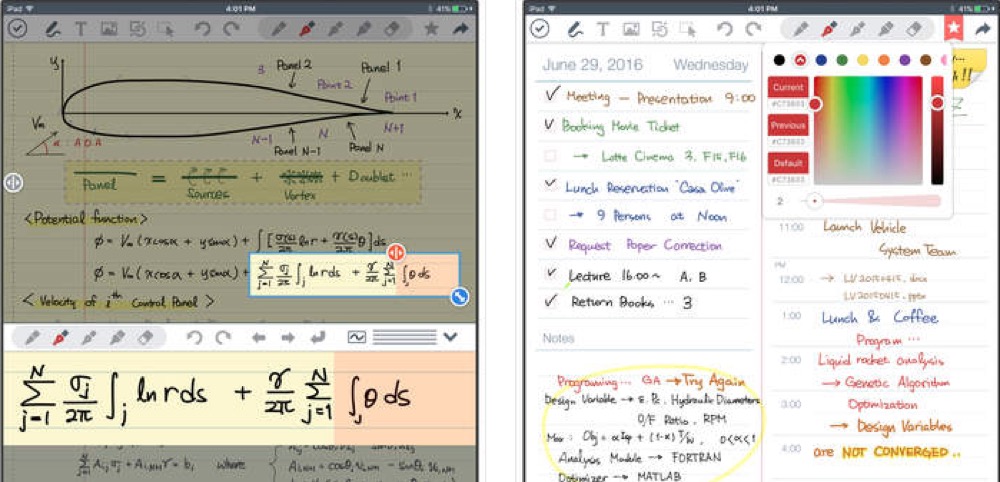 iPad 4:01 PM 41%
y
3 Panel 2
Panel 1
Point 2
Point 1
x
V∞
α : A.O.A
N-1 N N+1
Panel N-1 Panel N
Panel = Sources + Vortex + Doublet ...
<Potential function>
ϕ = V∞(xcosα + ysinα) +
ϕ = V∞(xcosα + ysinα) + Σ(j=1 to N) σj/2π ∫j ln r ds + γ/2π Σ(j=1 to N) ∫j θ ds
< Velocity of ith Control Panel >
Σ(j=1 to N) σj/2π ∫j ln r ds + γ/2π Σ(j=1 to N) ∫j θ ds
where
iPad 4:01 PM 41%
June 29, 2016 Wednesday
Meeting – Presentation 9:00
Booking Movie Ticket
→ Lotte Cinema 3. F15, F16
Lunch Reservation "Casa Olive"
→ 9 Persons at Noon
Request Paper Correction
Lecture 16:00~ A. B
Return Books ... 3
Notes
Programing... GA → Try Again
Design Variable → E. Pc. Hydraulic Diameters
O/F Ratio. RPM
Analysis Module → FORTRAN
Optimizer → MATLAB
Current
#C73B33
Previous
#C73B33
Default
#C73B33
2
!!
11:00 Launch Vehicle
System Team
PM
12:00
1:00 Lunch & Coffee
Program ...
2:00 Liquid rocket analysis
→ Genetic Algorithm
3:00 Optimization
→ Design Variables
4:00 are NOT CONVERGED..